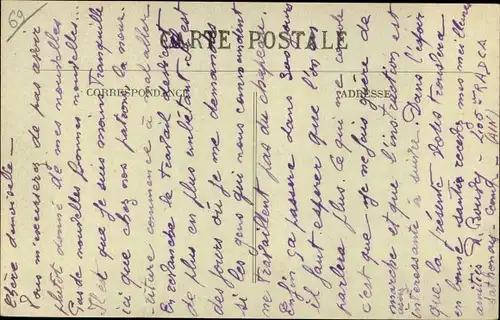 69
CARTE POSTALE
CORRESPONDANCE
ADRESSE
Chère demoiselle —
Vous m'excuserez de pas avoir
plutôt donné de mes nouvelles
Pas de nouvelles bonnes nouvelles...
Il est que je suis moins tranquille
ici que chez nos patrons la nour-
-riture commence à aller
En revanche le travail est
de plus en plus embêtant. Il est
des jours où je me demande
si les gens qui nous commandent
ne travaillent pas du chapeau.
Enfin ça passera dans 300 jours
il faut espérer que l'on en
parlera plus. Ce qui me console
c'est que je ne fais guère de
marche et que l'instruction est
assez intéressante à suivre. Dans l'espoir
que la présente vous trouvera
en bonne santé recevez mes meilleures
amitiés R. Bondy